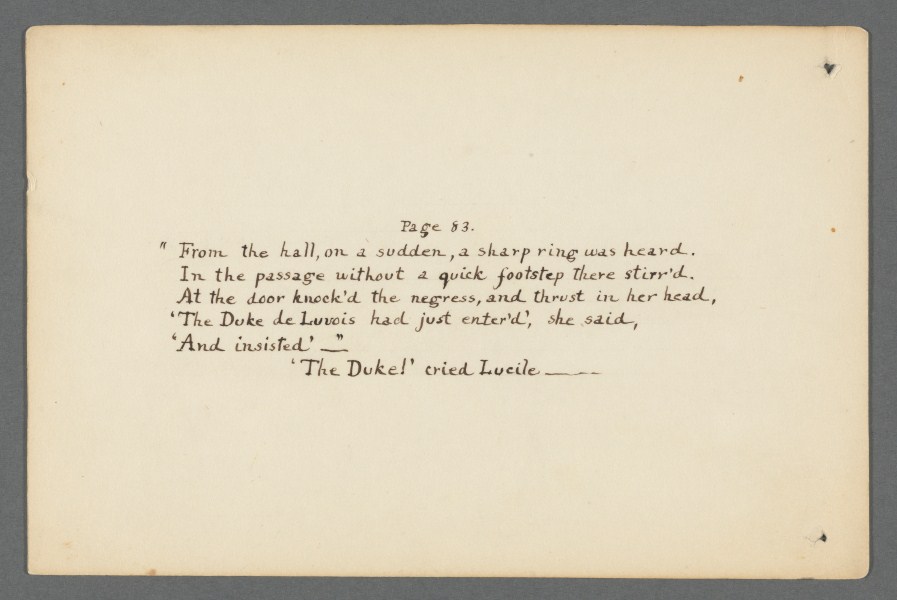 Page 83.
" From the hall, on a sudden, a sharp ring was heard.
In the passage without a quick footstep there stirr'd.
At the door knock'd the negress, and thrust in her head,
'The Duke de Luvois had just enter'd', she said,
'And insisted' —"
'The Duke!' cried Lucile ——